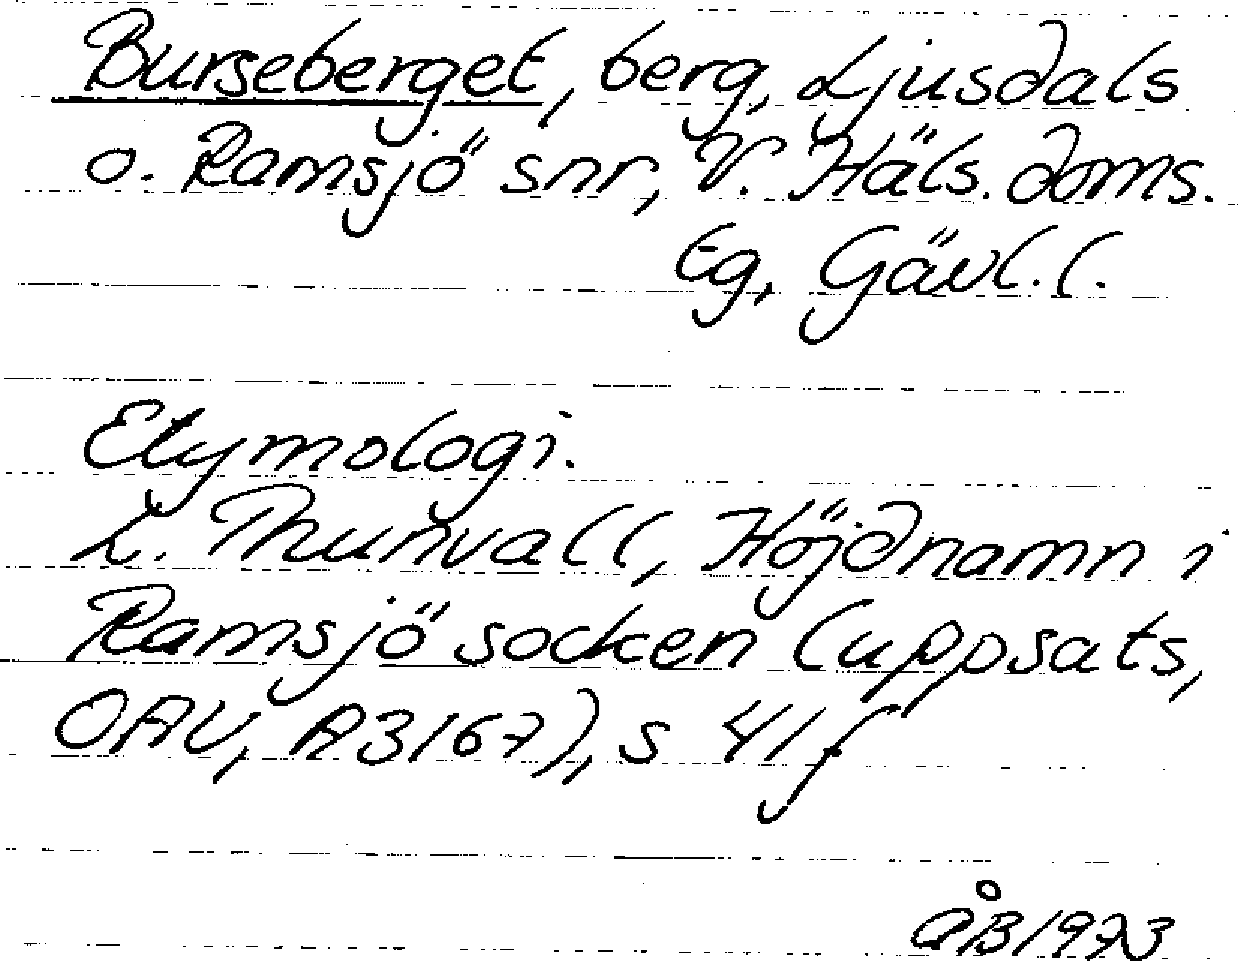 Burseberget, berg, Ljusdals
o. Ramsjö snr, V. Häls. doms.
Eg, Gävl. l.
Etymologi.
L. Thunvall, Höjdnamn i
Ramsjö socken (uppsats,
OAU, A3167), s 41 f
ÅB 1973